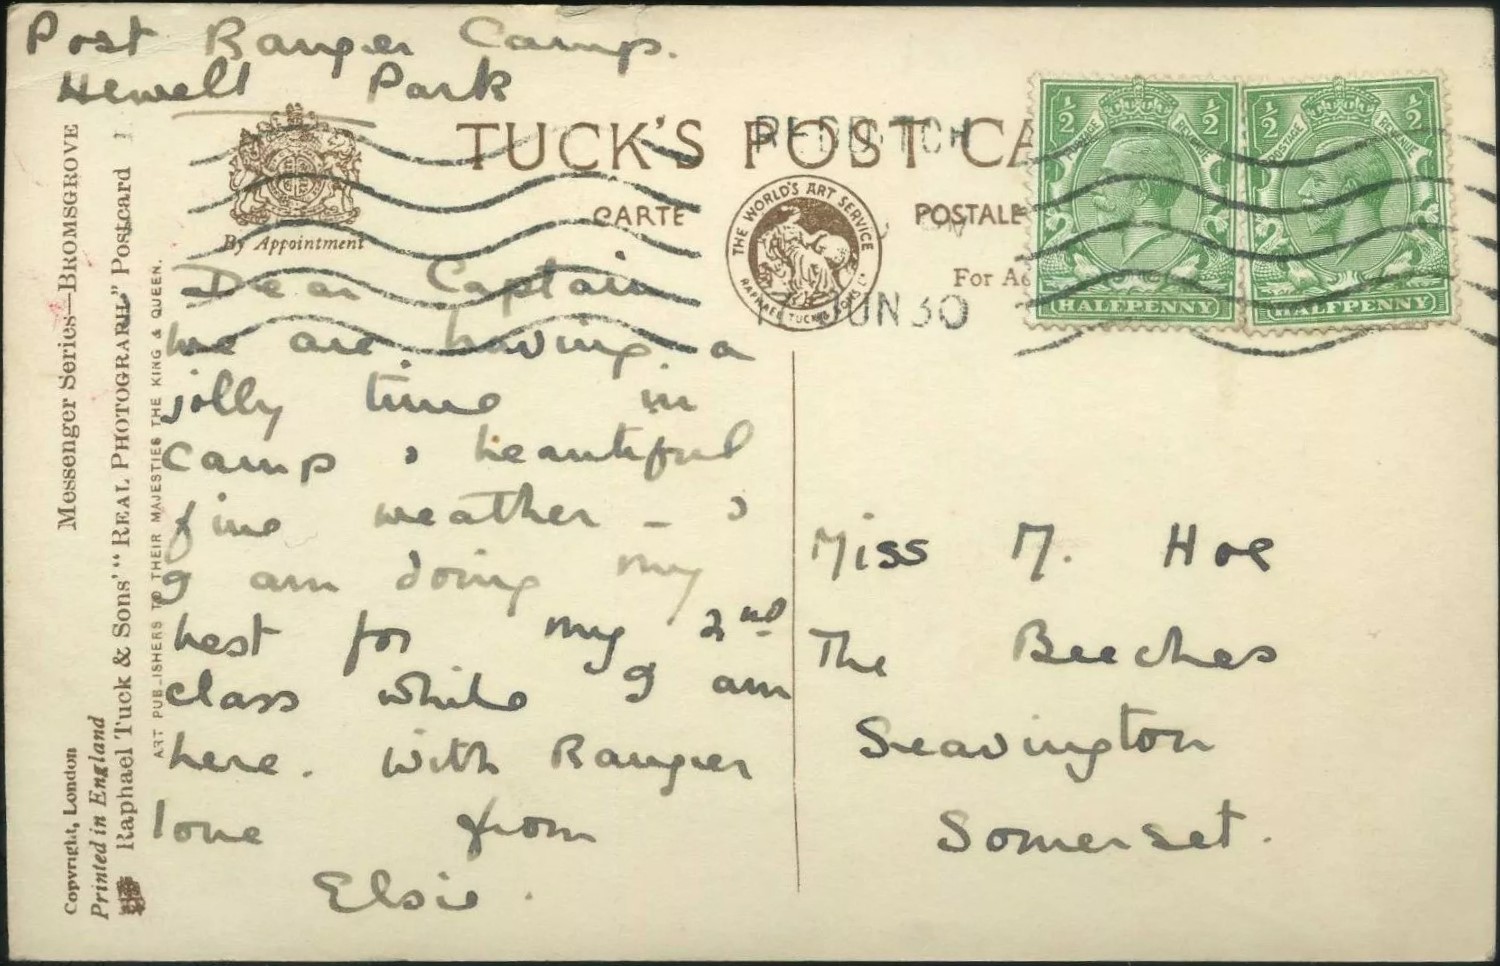 Post Ranger Camp.
Hewell Park
TUCK'S POST CA
CARTE POSTALE
By Appointment
THE WORLD'S ART SERVICE
For Ad
REDDITCH
JUN 30
½ ½
POSTAGE REVENUE
HALFPENNY
½ ½
POSTAGE REVENUE
HALFPENNY
Dear Captain
we are having a
jolly time in
camp & beautiful
fine weather - &
I am doing my
best for my 2nd
class while I am
here. With Ranger
love from
Elsie.
Miss M. Hoe
The Beeches
Seavington
Somerset.
Messenger Series—BROMSGROVE
Copyright, London
Printed in England
Raphael Tuck & Sons' "REAL PHOTOGRAPH" Postcard
ART PUBLISHERS TO THEIR MAJESTIES THE KING & QUEEN.